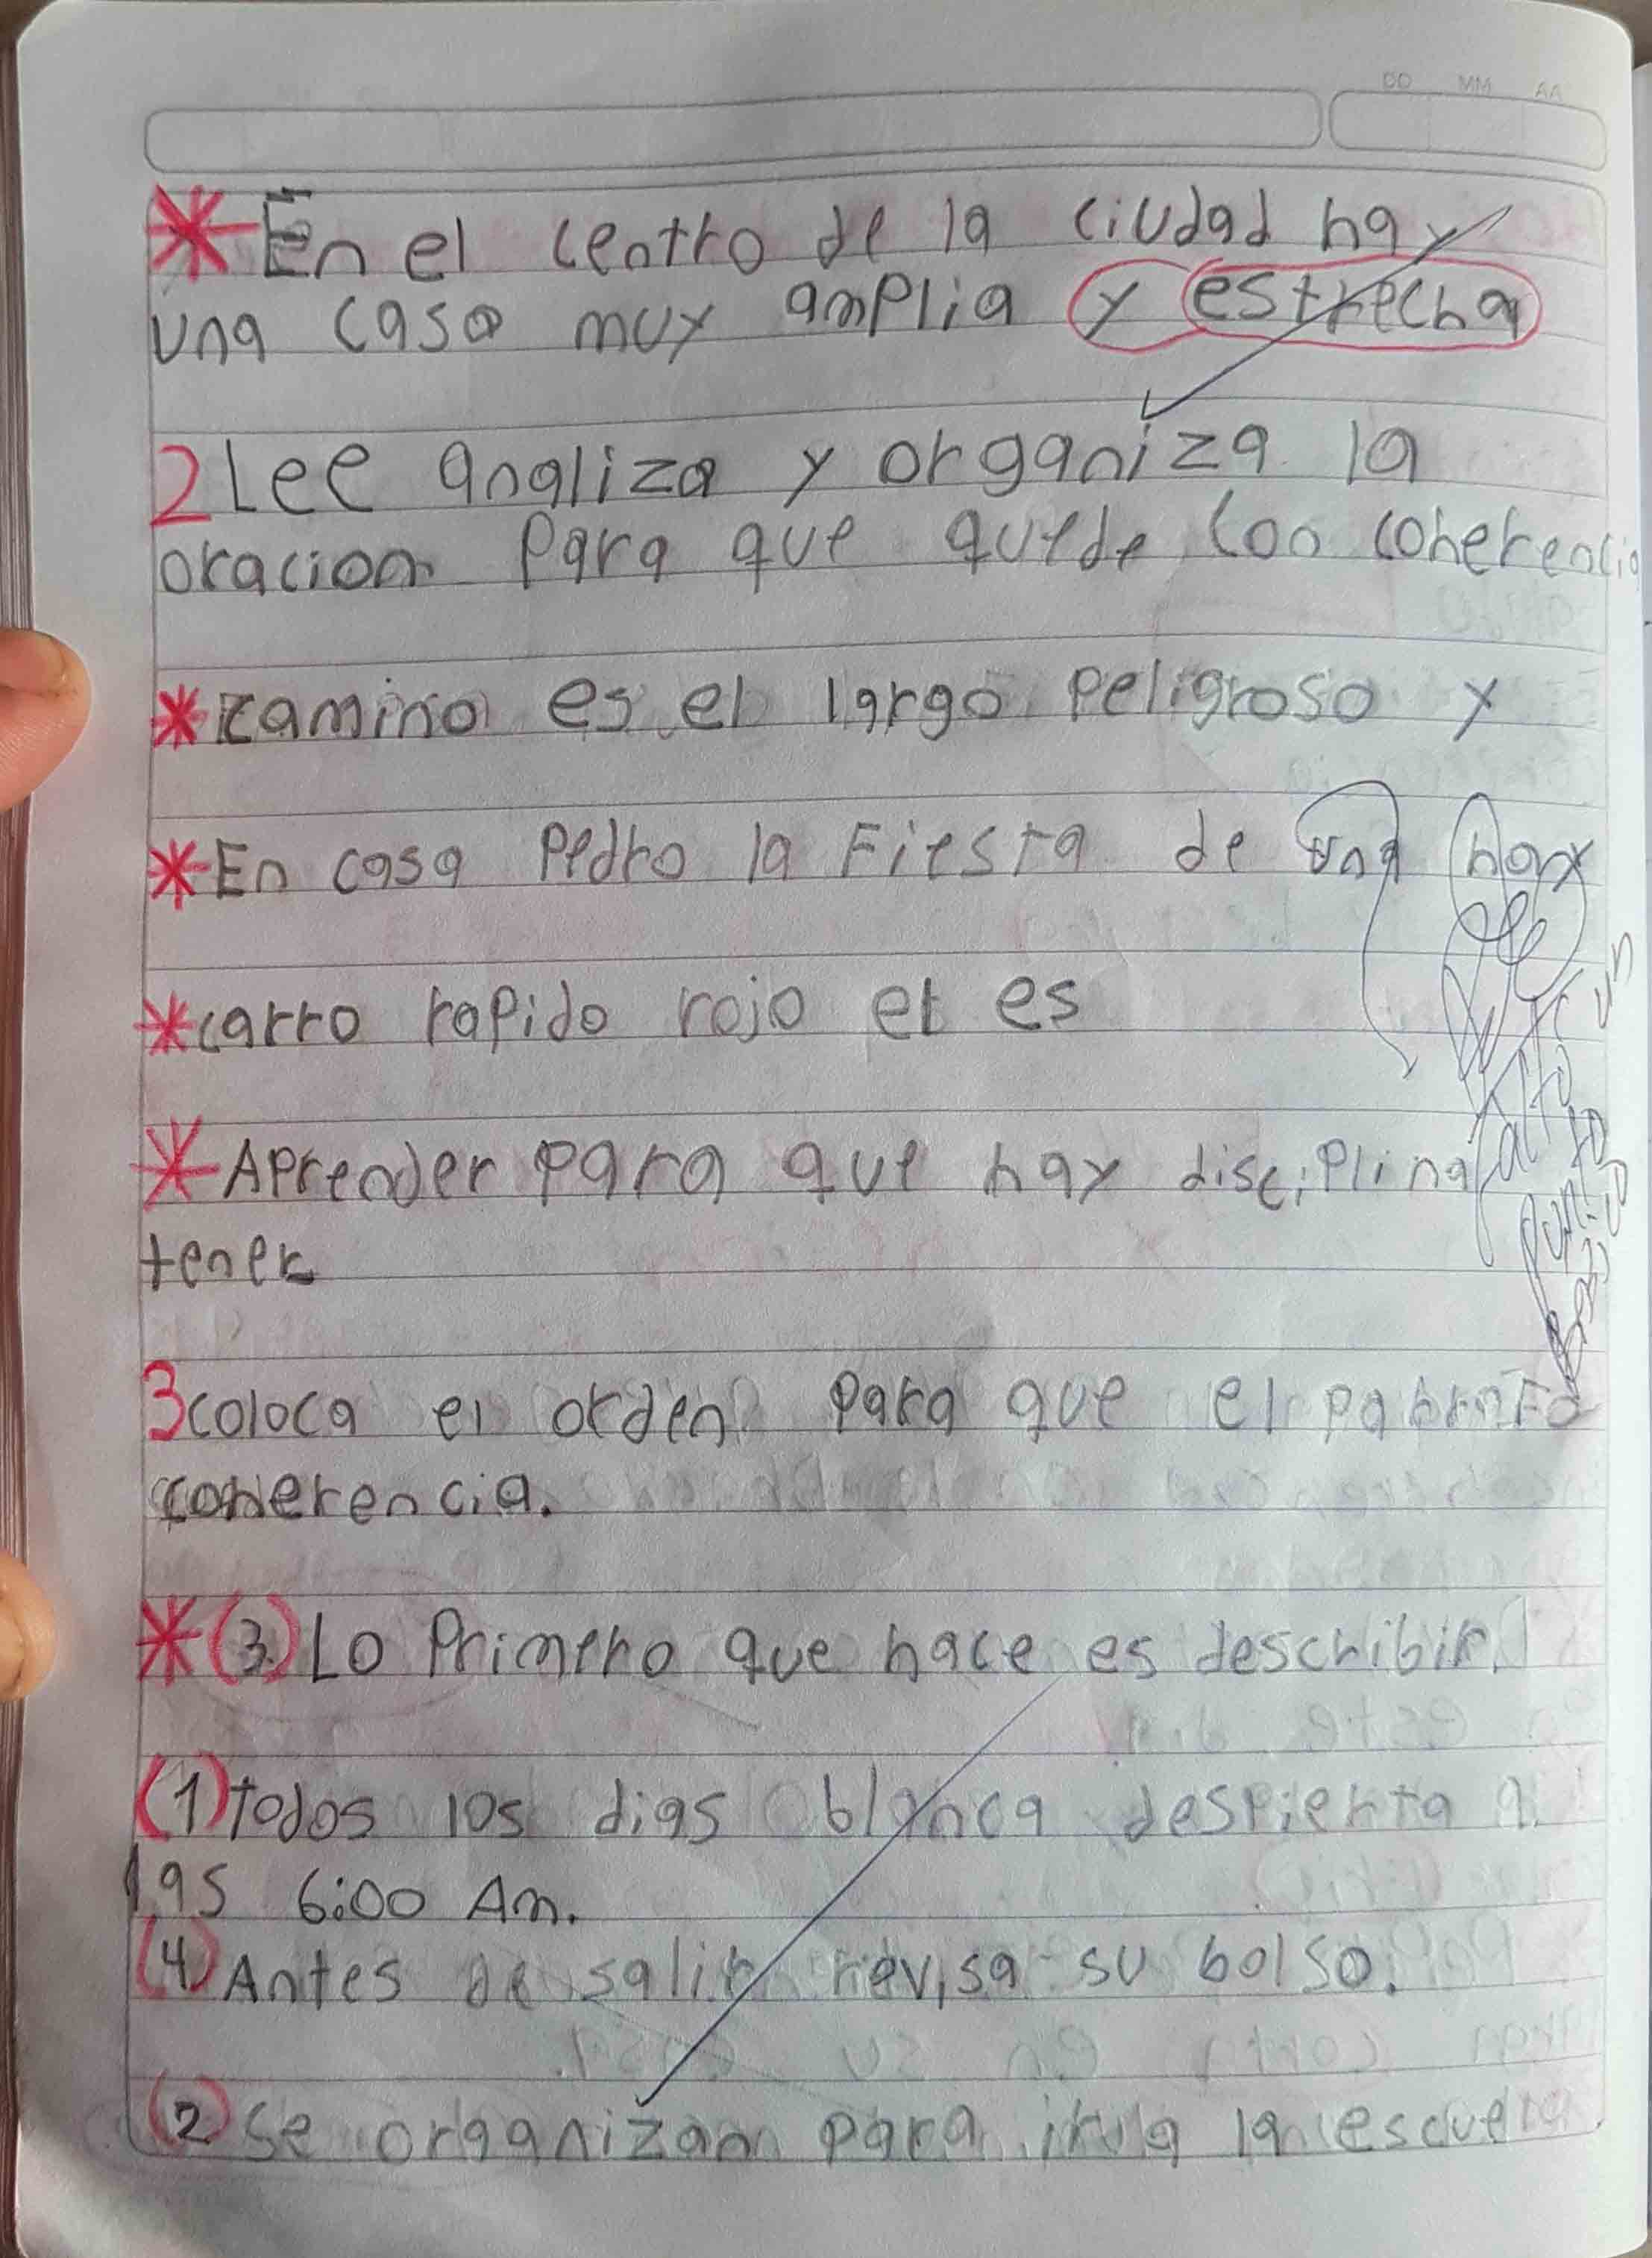 DD MM AA
* En el centro de la ciudad hay
una casa muy amplia y estrecha
2 Lee analiza y organiza la
oracion para que quede con coherencia
* camino es el largo peligroso y
* En casa Pedro la Fiesta de una hay
* carro rapido rojo el es
* Aprender para que hay disciplina
tener
falto un
punto
3 coloca el orden para que el
coherencia.
* (3.) Lo Primero que hace es describir.
(1) todos los dias blanca despierta a.
las 6:00 Am.
(4) Antes de salir revisa su bolso.
(2) se organizan para ir a la escuela